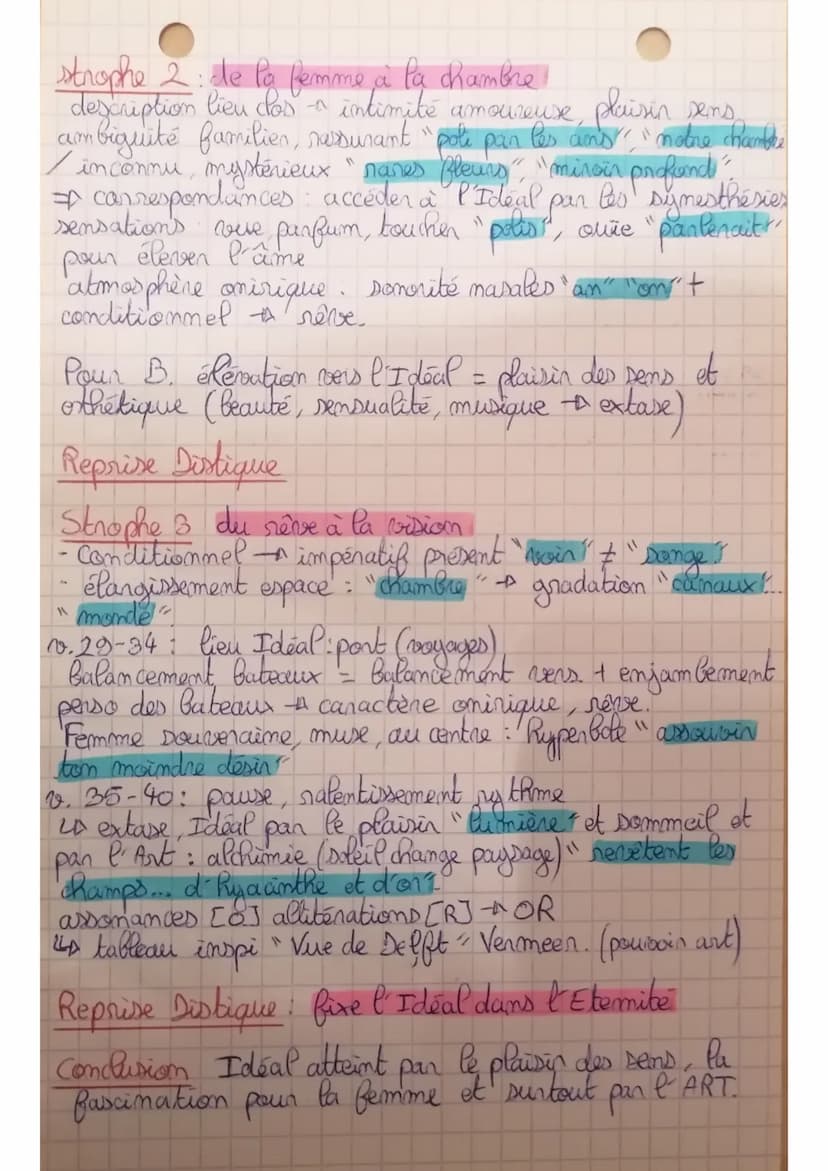 Strophe 2 : de la femme à la chambre
description lieu clos → intimité amoureuse, plaisir sens
ambiguité familier, rassurant "poli par les ans", "notre chambre"
/ inconnu, mystérieux "rares fleurs", "miroir profond"
⇒ correspondances : accéder à l'Idéal par les synesthésies
sensations vue parfum, toucher "polis", ouïe "parlerait"
pour élever l'âme
atmosphère onirique. sonorité nasales "an" "on" +
conditionnel → rêve.
Pour B. élévation vers l'Idéal = plaisir des sens et
esthétique (beauté, sensualité, musique → extase)
Reprise Distique
Strophe 3 du rêve à la vision
- Conditionnel → impératif présent "voir" ≠ "songe"
- élargissement espace : "chambre" → gradation "canaux"...
"monde"
v. 29-34 : lieu Idéal : port (voyages)
Balancement bateaux = Balancement vers. + enjambement
perso des bateaux → caractère onirique, rêve.
Femme souveraine, muse, au centre : hyperbole "assouvir
ton moindre désir"
v. 35-40 : pause, ralentissement rythme
↳ extase, Idéal par le plaisir "lumière" et sommeil et
par l'Art : alchimie (soleil change paysage) "revêtent les
champs... d'hyacinthe et d'or"
assonances [O] allitérations [R] → OR
↳ tableau inspi "Vue de Delft" Vermeer. (pouvoir art)
Reprise Distique : fixe l'Idéal dans l'Eternité
Conclusion Idéal atteint par le plaisir des sens, la
fascination pour la femme et surtout par l'ART.